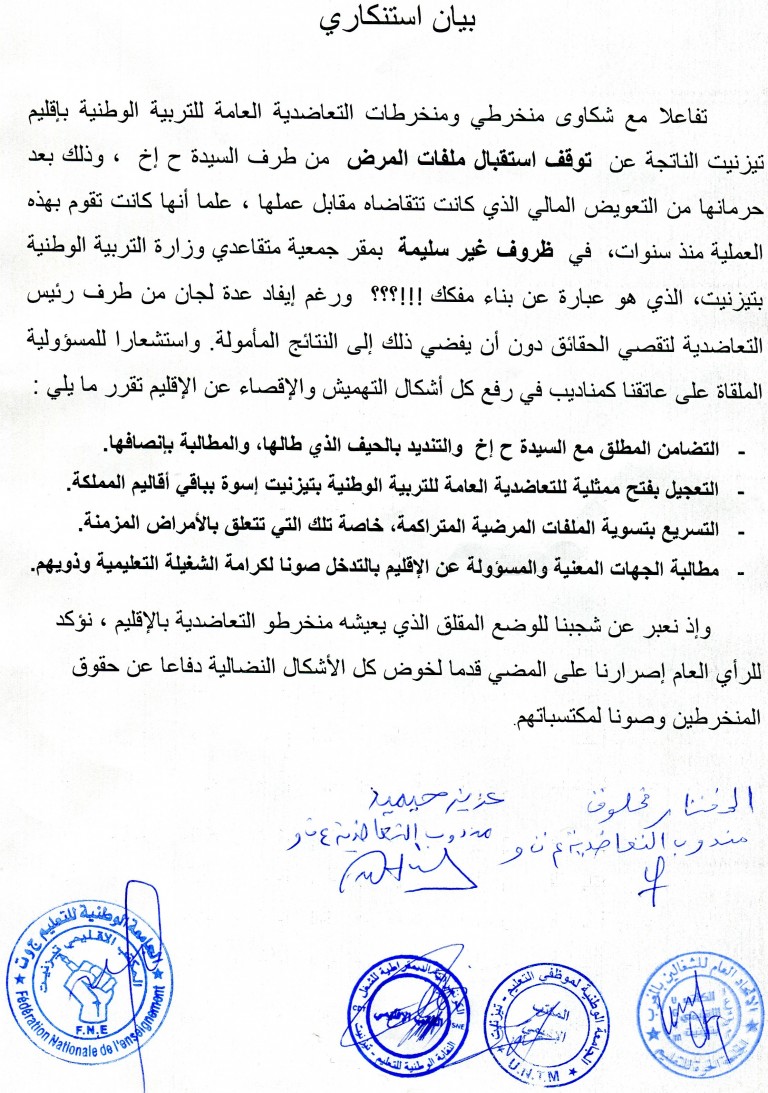 بيان استنكاري
تفاعلا مع شكاوى منخرطي ومنخرطات التعاضدية العامة للتربية الوطنية بإقليم
تيزنيت الناتجة عن توقف استقبال ملفات المرض من طرف السيدة ح إخ ، وذلك بعد
حرمانها من التعويض المالي الذي كانت تتقاضاه مقابل عملها ، علما أنها كانت تقوم بهذه
العملية منذ سنوات، في ظروف غير سليمة بمقر جمعية متقاعدي وزارة التربية الوطنية
بتيزنيت، الذي هو عبارة عن بناء مفكك !!!؟؟؟ ورغم إيفاد عدة لجان من طرف رئيس
التعاضدية لتقصي الحقائق دون أن يفضي ذلك إلى النتائج المأمولة. واستشعارا للمسؤولية
الملقاة على عاتقنا كمناديب في رفع كل أشكال التهميش والإقصاء عن الإقليم تقرر ما يلي :
- التضامن المطلق مع السيدة ح إخ والتنديد بالحيف الذي طالها، والمطالبة بإنصافها.
- التعجيل بفتح ممثلية للتعاضدية العامة للتربية الوطنية بتيزنيت إسوة بباقي أقاليم المملكة.
- التسريع بتسوية الملفات المرضية المتراكمة، خاصة تلك التي تتعلق بالأمراض المزمنة.
- مطالبة الجهات المعنية والمسؤولة عن الإقليم بالتدخل صونا لكرامة الشغيلة التعليمية وذويهم.
وإذ نعبر عن شجبنا للوضع المقلق الذي يعيشه منخرطو التعاضدية بالإقليم ، نؤكد
للرأي العام إصرارنا على المضي قدما لخوض كل الأشكال النضالية دفاعا عن حقوق
المنخرطين وصونا لمكتسباتهم.
مخلوف
عزيز حيمية
مندوب التعاضدية ع ت و
مندوب التعاضدية ع ت و
الجامعة الوطنية للتعليم
المكتب الاقليمي تيزنيت
F.N.E
Fédération Nationale de l'enseignement
النقابة الوطنية للتعليم - تيزنيت
الجامعة الوطنية لموظفي التعليم - تيزنيت
المكتب
الاقليمي
U.N.T.M
الاتحاد العام للشغالين بالمغرب